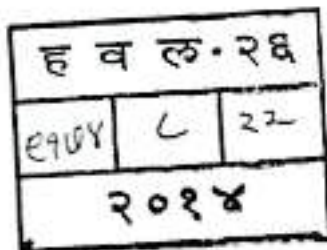 ह व ल - २६
९१७४ ८ २२
२०१४